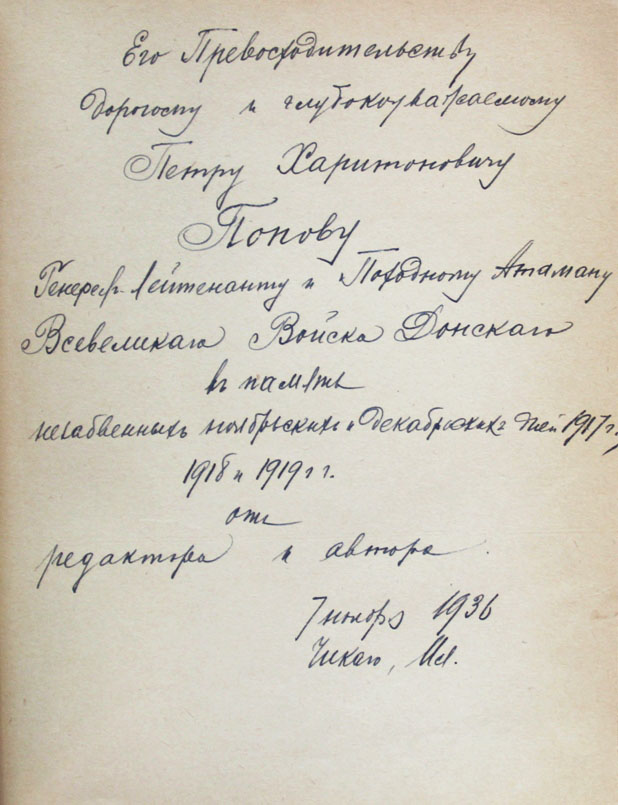 Его Превосходительству
дорогому и глубокоуважаемому
Петру Харитоновичу
Попову
Генерал-Лейтенанту и Походному Атаману
Всевеликаго Войска Донскаго
въ память
незабвенныхъ ноябрьскихъ и декабрьскихъ дней 1917 г.,
1918 и 1919 г г.
отъ
редактора и автора.
7 ноября 1936
Чикаго, Ил.